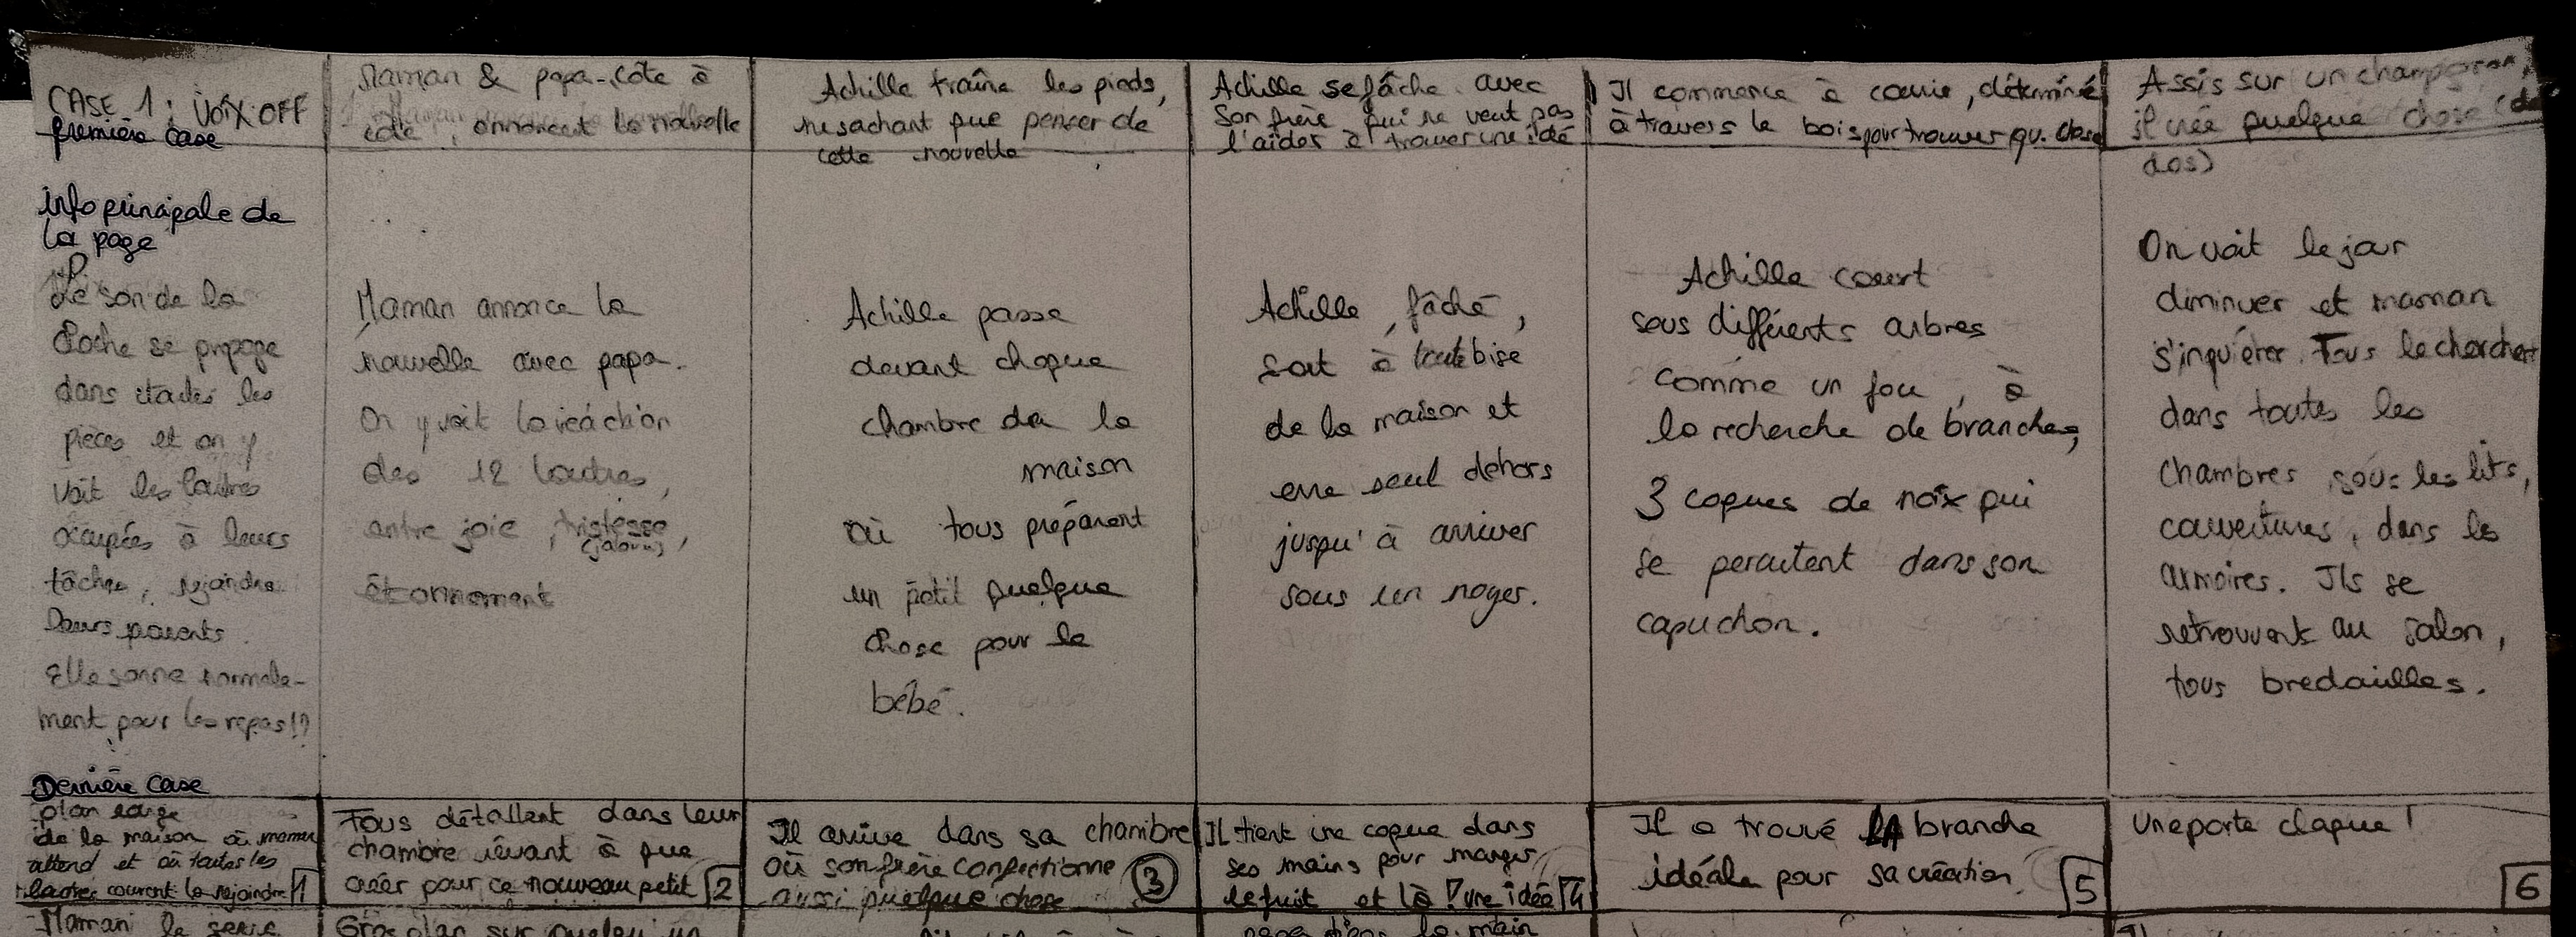 CASE 1 : VOIX OFF
première case
info principale de
la page
Le son de la
cloche se propage
dans toutes les
pièces et on y
voit les loutres
occupées à leurs
tâches, rejoindre
leurs parents.
Elle sonne normale-
ment pour les repas !?
Dernière case
plan large
de la maison où maman
attend et où toutes les
loutres courent la rejoindre
1
Maman & papa côte à
côte, annoncent la nouvelle
Maman annonce la
nouvelle avec papa.
On y voit la réaction
des 12 loutres,
entre joie, tristesse,
(jaloux)
étonnement
Tous détallent dans leur
chambre rêvant à que
créer pour ce nouveau petit
2
Achille traîne les pieds,
ne sachant que penser de
cette nouvelle
Achille passe
devant chaque
chambre de la
maison
où tous préparent
un petit quelque
chose pour le
bébé.
Il arrive dans sa chambre
où son frère confectionne
aussi quelque chose
3
Achille se fâche avec
son frère qui ne veut pas
l'aider à trouver une idé
Achille, fâché,
sort à toute bise
de la maison et
erre seul dehors
jusqu'à arriver
sous un noyer.
Il tient une coque dans
ses mains pour manger
le fruit et là ! une idée
4
Il commence à courir, déterminé
à travers le bois pour trouver qq. chose
Achille court
sous différents arbres
comme un fou, à
la recherche de branches,
3 coques de noix qui
se percutent dans son
capuchon.
Il a trouvé LA branche
idéale pour sa création.
5
Assis sur un champignon,
il crée quelque chose (de
dos)
On voit le jour
diminuer et maman
s'inquiéter. Tous le cherchent
dans toutes les
chambres, sous les lits,
couvertures, dans les
armoires. Ils se
retrouvent au salon,
tous bredouilles.
Une porte claque !
6
Maman le serre
Gros plan sur quelqu'un
dans la main